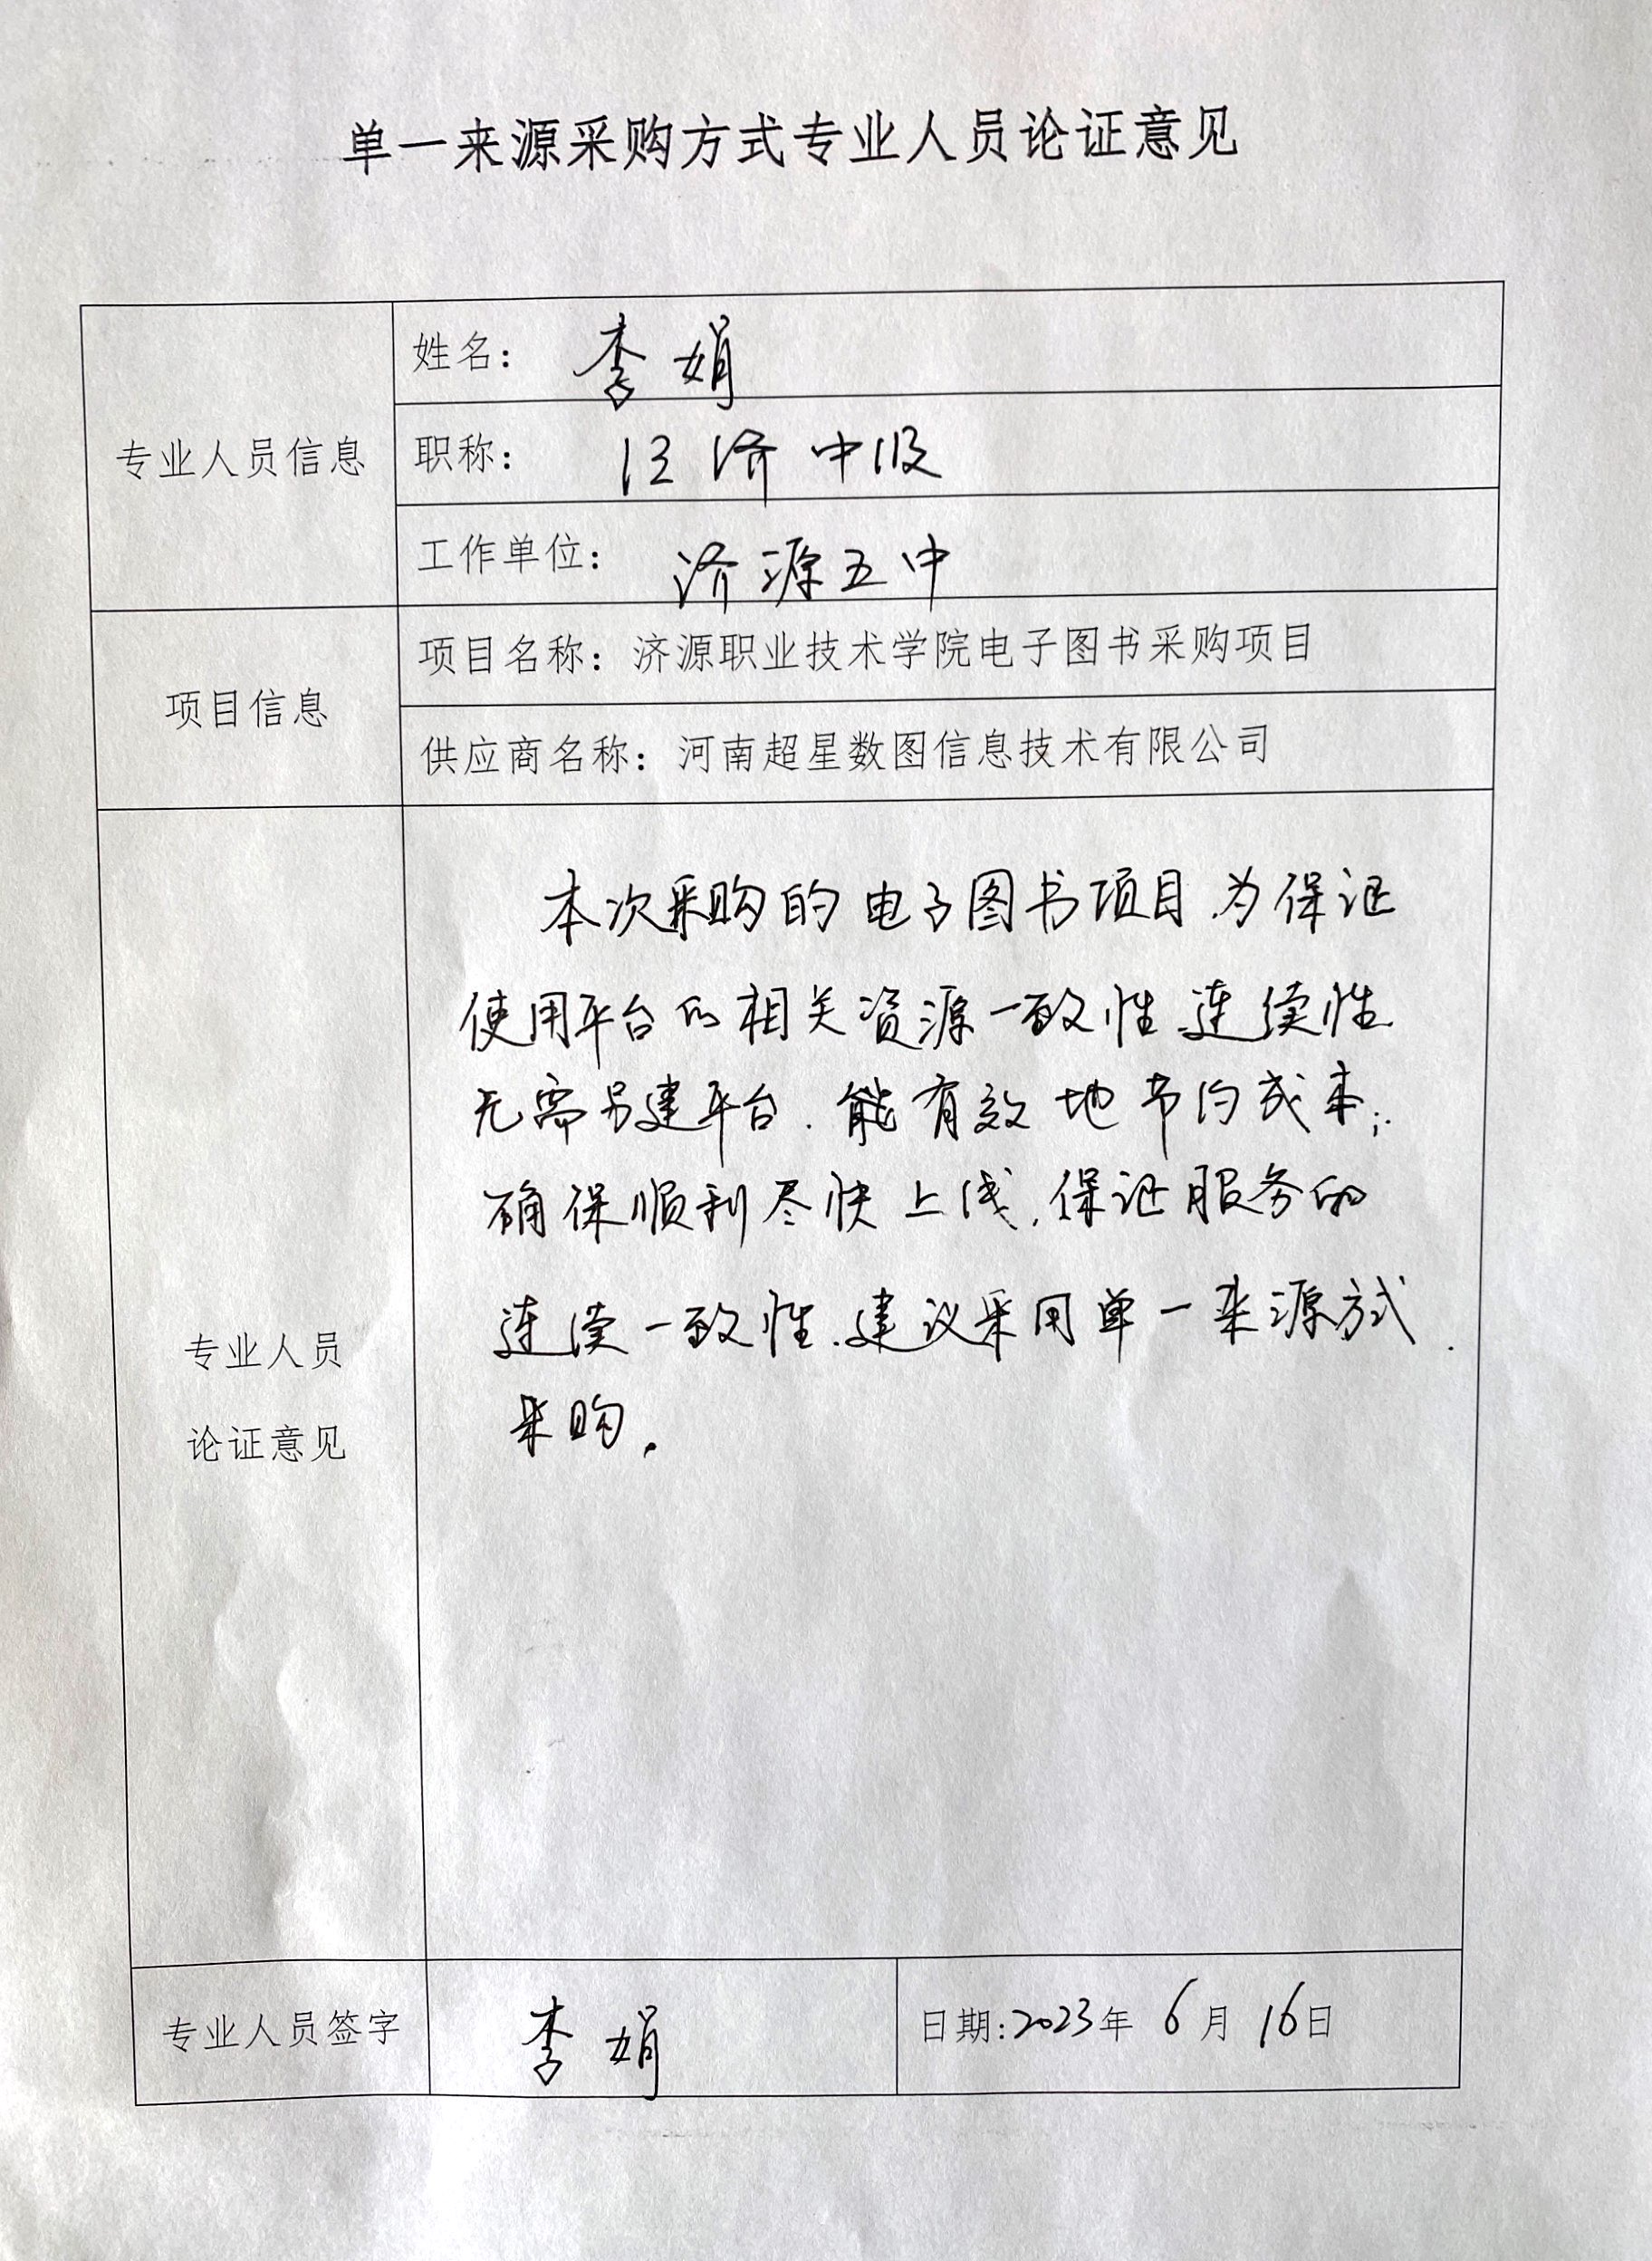 单一来源采购方式专业人员论证意见
专业人员信息
姓名：李娟
职称：经济中级
工作单位：济源五中
项目信息
项目名称：济源职业技术学院电子图书采购项目
供应商名称：河南超星数图信息技术有限公司
专业人员
论证意见
本次采购的电子图书项目，为保证
使用平台的相关资源一致性、连续性
无需另建平台，能有效地节约成本；
确保顺利尽快上线，保证服务的
连续一致性，建议采用单一来源方式
采购。
专业人员签字
李娟
日期：2023年6月16日